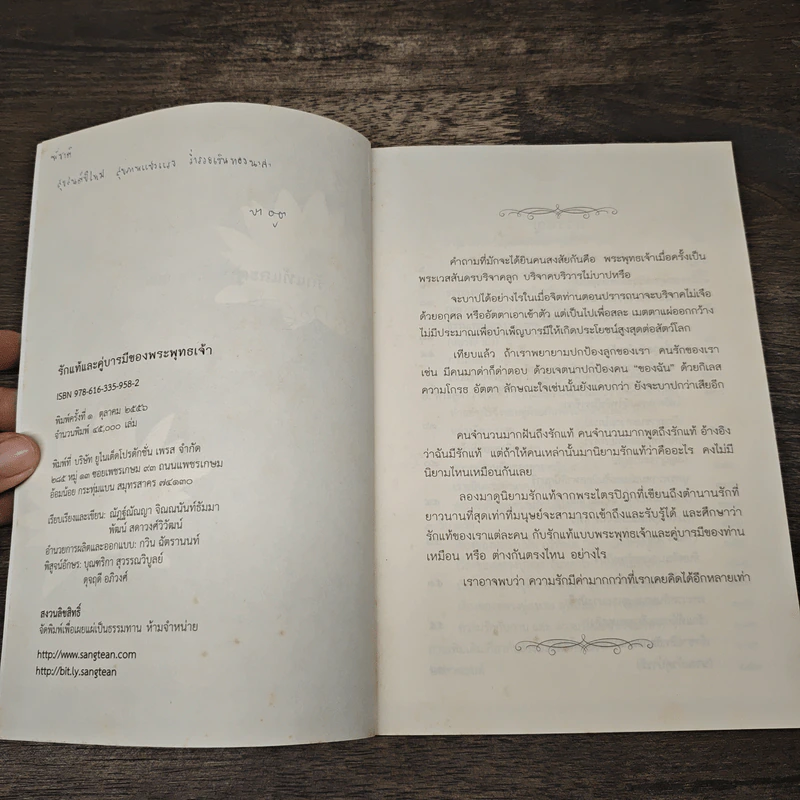 สุขสันต์ปีใหม่ สุขภาพแข็งแรง ร่ำรวยเงินทองนะคะ
รักแท้และคู่บารมีของพระพุทธเจ้า
ISBN 978-616-335-958-2
พิมพ์ครั้งที่ ๑ ตุลาคม ๒๕๕๖
จำนวนพิมพ์ ๔๕,๐๐๐ เล่ม
พิมพ์ที่ บริษัท ยูไนเต็ดโปรดักชั่น เพรส จำกัด
๒๘๕ หมู่ ๑๓ ซอยเพชรเกษม ๙๓ ถนนเพชรเกษม
อ้อมน้อย กระทุ่มแบน สมุทรสาคร ๗๔๑๓๐
เรียบเรียงและเขียน: ณัฏฐ์ณัญา จิณณนันท์ธัมมา
พัฒน์ สดาวงศ์วิวัฒน์
อำนวยการผลิตและออกแบบ: กวิน ฉัตรานนท์
พิสูจน์อักษร: บุณฑริกา สุวรรณวิบูลย์
ดุจฤดี อภิวงศ์
สงวนลิขสิทธิ์
จัดพิมพ์เพื่อเผยแผ่เป็นธรรมทาน ห้ามจำหน่าย
http://www.sangtean.com
http://bit.ly.sangtean
คำถามที่มักจะได้ยินคนสงสัยกันคือ พระพุทธเจ้าเมื่อครั้งเป็น
พระเวสสันดรบริจาคลูก บริจาคบริวารไม่บาปหรือ
จะบาปได้อย่างไรในเมื่อจิตท่านตอนปรารถนาจะบริจาคไม่เจือ
ด้วยอกุศล หรืออัตตาเอาเข้าตัว แต่เป็นไปเพื่อสละ เมตตาแผ่ออกกว้าง
ไม่มีประมาณเพื่อบำเพ็ญบารมีให้เกิดประโยชน์สูงสุดต่อสัตว์โลก
เทียบแล้ว ถ้าเราพยายามปกป้องลูกของเรา คนรักของเรา
เช่น มีคนมาด่าก็ด่าตอบ ด้วยเจตนาปกป้องคน “ของฉัน” ด้วยกิเลส
ความโกรธ อัตตา ลักษณะใจเช่นนั้นยังแคบกว่า ยังจะบาปกว่าเสียอีก
คนจำนวนมากฝันถึงรักแท้ คนจำนวนมากพูดถึงรักแท้ อ้างอิง
ว่าฉันมีรักแท้ แต่ถ้าให้คนเหล่านั้นมานิยามรักแท้ว่าคืออะไร คงไม่มี
นิยามไหนเหมือนกันเลย
ลองมาดูนิยามรักแท้จากพระไตรปิฎกที่เขียนถึงตำนานรักที่
ยาวนานที่สุดเท่าที่มนุษย์จะสามารถเข้าถึงและรับรู้ได้ และศึกษาว่า
รักแท้ของเราแต่ละคน กับรักแท้แบบพระพุทธเจ้าและคู่บารมีของท่าน
เหมือน หรือ ต่างกันตรงไหน อย่างไร
เราอาจพบว่า ความรักมีค่ามากกว่าที่เราเคยคิดได้อีกหลายเท่า